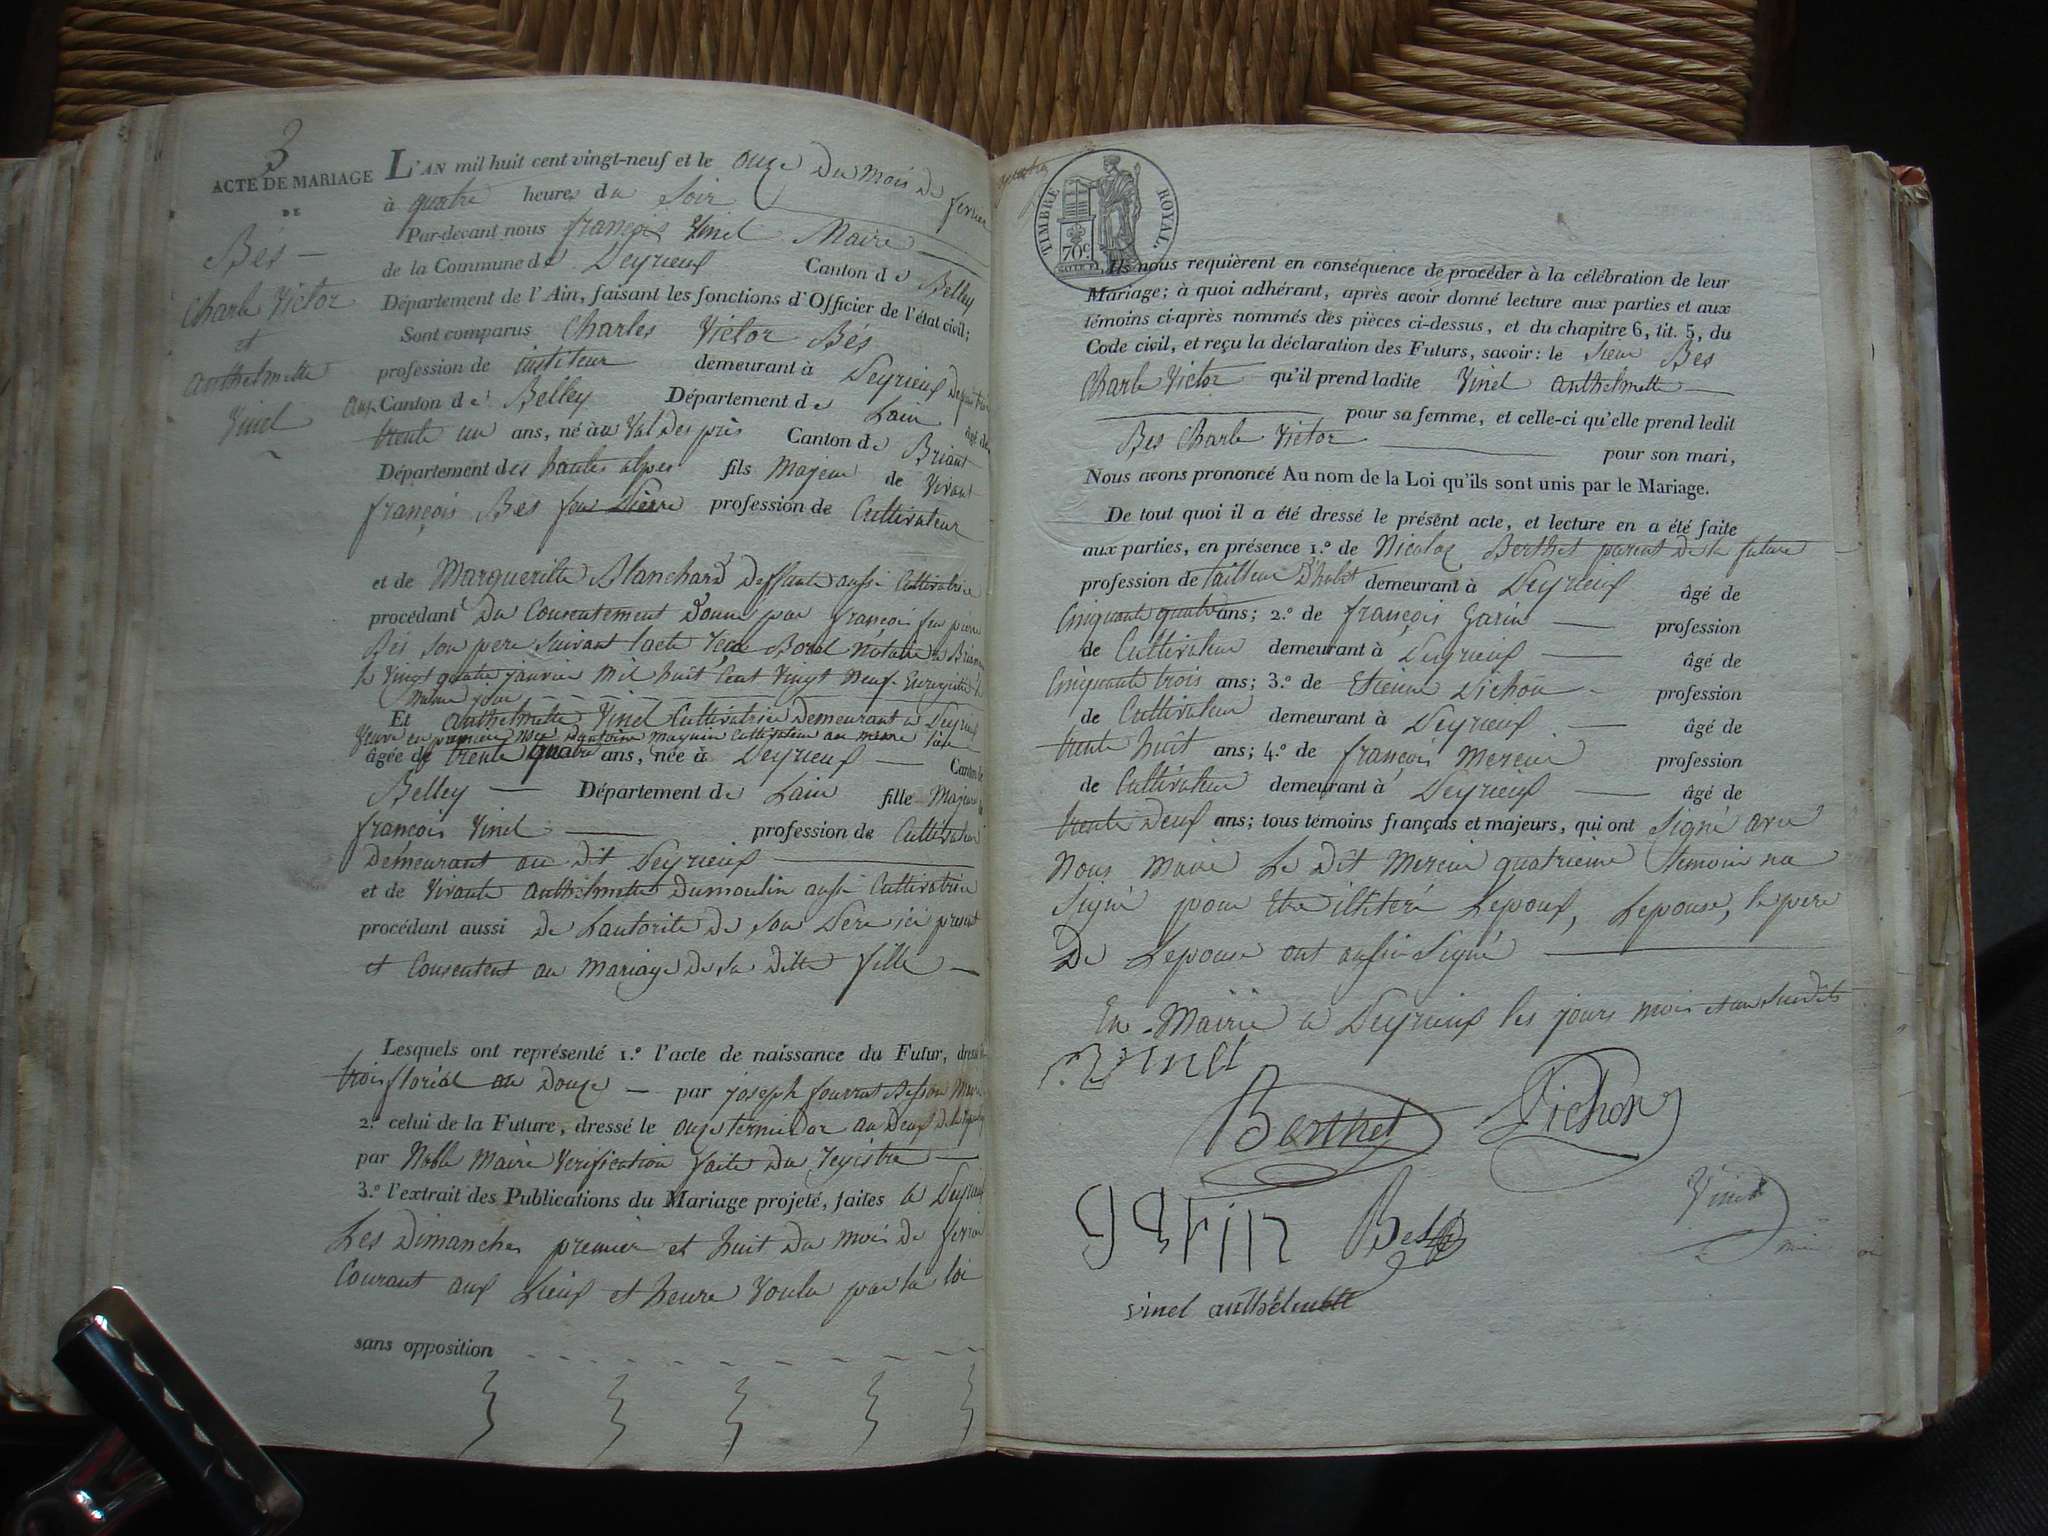 3
ACTE DE MARIAGE
DE
Bés
Charle Victor
et
anthelmette
Vinel
L'AN mil huit cent vingt-neuf et le onze Du mois De fevrier
à quatre heures du Soir
Par-devant nous françois Vinel Maire
de la Commune de Peyrieux Canton de Belley
Département de l'Ain, faisant les fonctions d'Officier de l'état civil;
Sont comparus Charles Victor Bés
profession de institeur demeurant à Peyrieux
Canton de Belley Département de Lain âgé de
trente un ans, né au Val Des prés Canton de Briant
Département des hautes alpes fils Majeur de Vivant
françois Bés feu Pierre profession de Cultivateur
et de Margueritte Blanchard Deffunte aussi Cultivatrice
procédant Du Consentement Donné par françois feu pierre
Bés Son pere Suivant lacte Borel Notaire a
le Vingt quatre janvier Mil huit Cent Vingt Neuf Enregistré le
meme jour
Et anthelmette Vinel Cultivatrice Demeurant a Peyrieux
Veuve en premiere Noce Dantoine Cultivateur au meme lieu
âgée de trente quatre ans, née à Peyrieux Canton de
Belley Département de Lain fille Majeure de
françois Vinel profession de Cultivateur
Demeurant au dit Peyrieux
et de Vivante anthelmette Dumoulin aussi Cultivatrice
procédant aussi De Lautorite De Son Pere ici present
et Consentent au Mariage De Sa Ditte fille
Lesquels ont représenté 1.º l'acte de naissance du Futur, dressé le
trois floréal an Douze par joseph Maire
2.º celui de la Future, dressé le onze termidor an Deux
par Noble Maire Verification faite Du registre
3.º l'extrait des Publications du Mariage projeté, faites a Peyrieux
Les Dimanches premier et huit Du mois De fevrier
Courant aux Lieux et heure Voulu par la loi
sans opposition
TIMBRE ROYAL.
70 c.
Ils nous requièrent en conséquence de procéder à la célébration de leur
Mariage; à quoi adhérant, après avoir donné lecture aux parties et aux
témoins ci-après nommés des pièces ci-dessus, et du chapitre 6, tit. 5, du
Code civil, et reçu la déclaration des Futurs, savoir: le Sieur Bés
Charle Victor qu'il prend ladite Vinel anthelmette
pour sa femme, et celle-ci qu'elle prend ledit
Bés Charle Victor pour son mari,
Nous avons prononcé Au nom de la Loi qu'ils sont unis par le Mariage.
De tout quoi il a été dressé le présent acte, et lecture en a été faite
aux parties, en présence 1.º de Nicolas Berthet parent de la future
profession de tailleur D'habit demeurant à Peyrieux âgé de
Cinquante quatre ans; 2.º de françois Garin profession
de Cultivateur demeurant à Peyrieux âgé de
Cinquante trois ans; 3.º de Etienne Pichon profession
de Cultivateur demeurant à Peyrieux âgé de
trente huit ans; 4.º de françois Mercier profession
de Cultivateur demeurant à Peyrieux âgé de
trente Deux ans; tous témoins français et majeurs, qui ont Signé avec
Nous maire Le Dit Mercier quatrieme temoin na
Signé pour Etre illiteré Lepoux, Lepouse, le pere
De Lepouse ont aussi Signé
En Mairie a Peyrieux les jours mois et an Susdits
Vinel
Berthet
Pichon
garin
Bés
Vinel
vinel anthelmette